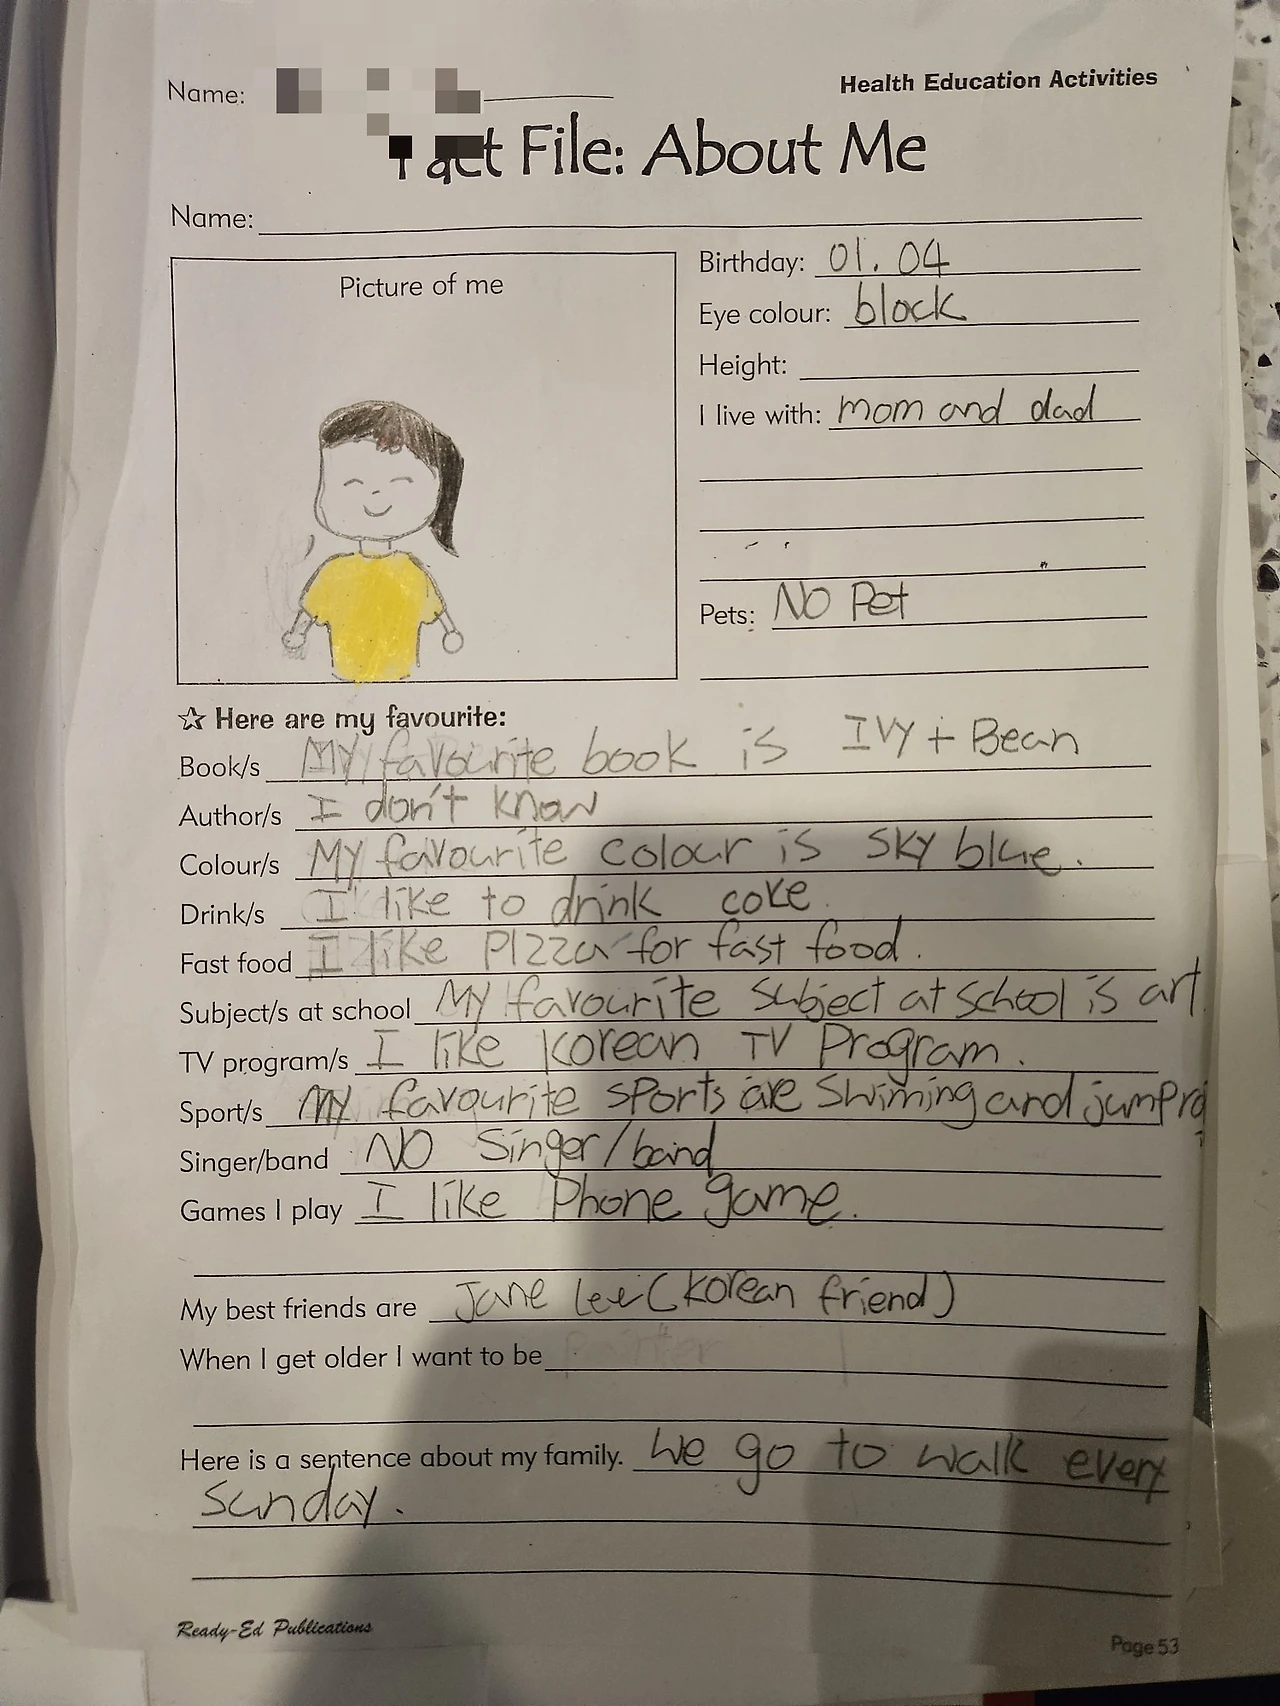 Name:
Health Education Activities
Fact File: About Me
Name:
Picture of me
Birthday: 01. 04
Eye colour: block
Height:
I live with: mom and dad
Pets: No Pet
☆ Here are my favourite:
Book/s My favourite book is Ivy + Bean
Author/s I don't know
Colour/s My favourite colour is sky blue.
Drink/s I like to drink coke.
Fast food I like Pizza for fast food.
Subject/s at school My favourite subject at school is art.
TV program/s I like Korean TV Program.
Sport/s My favourite sports are Swiming and jumpro
Singer/band No Singer/band
Games I play I like Phone game.
My best friends are Jane Lee (Korean friend)
When I get older I want to be painter
Here is a sentence about my family. We go to walk every
Sunday.
Ready-Ed Publications
Page 53